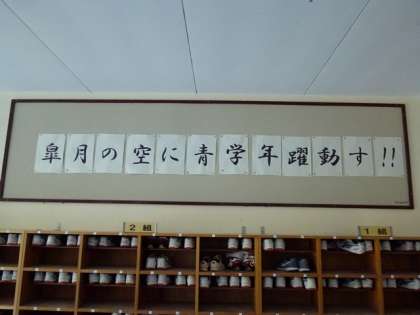 皐月の空に青学年躍動す!!
2組
1組